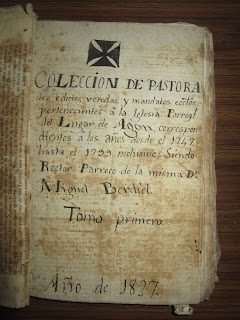 COLECCION DE PASTORA
les edictos veredas y mandatos ecctos
pertenecientes à la Iglesia Parroql.
del Lugar de Agon, correspon
dientes a los años desde el 1747
hasta el 1799 inclusive; Siendo
Rector Parroco de la misma Dn.
Miguel Berdiel
Tomo primero
Año de 1827.